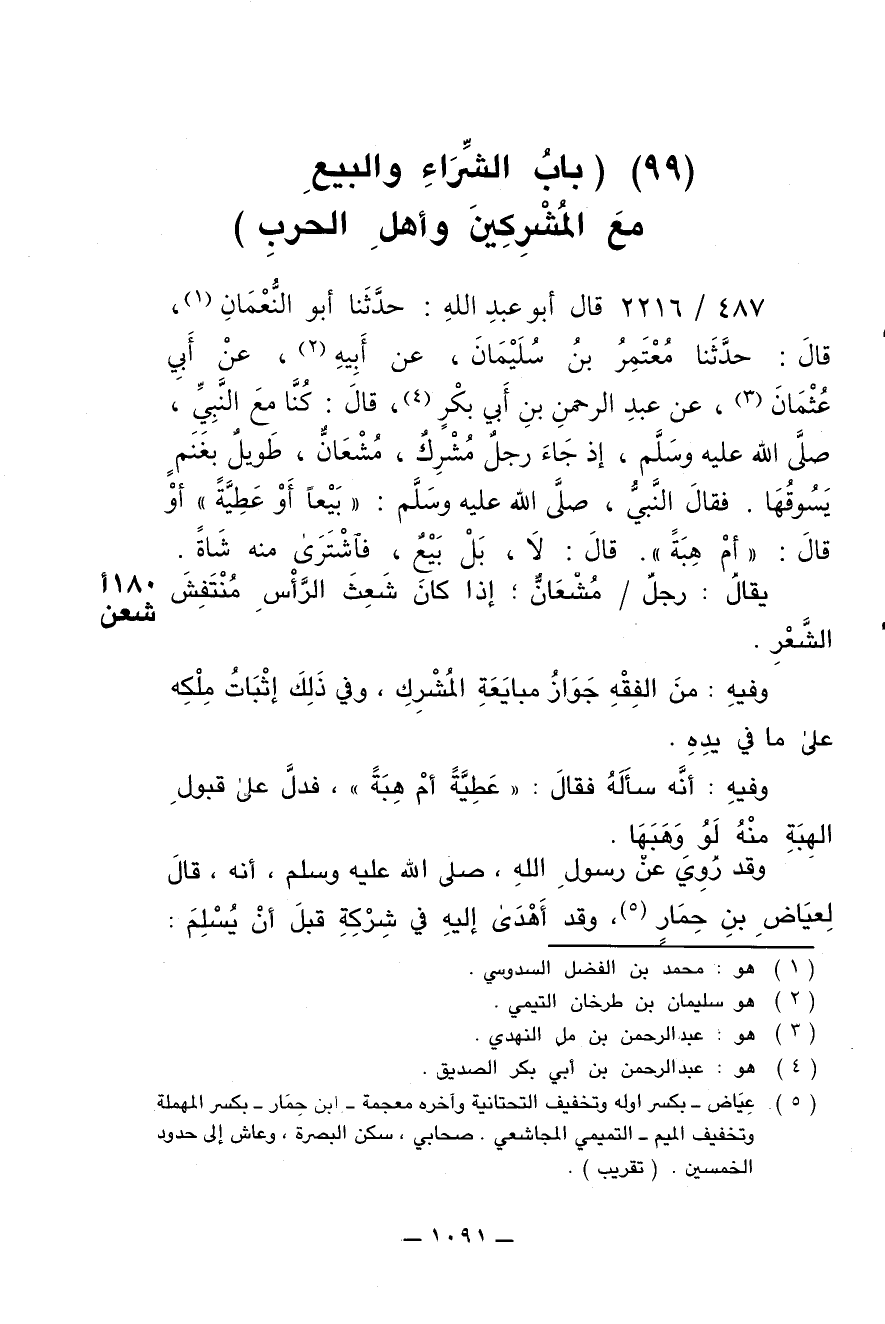 (٩٩) ( بابُ الشِّرَاءِ والبيعِ
معَ المُشْرِكِينَ وأهلِ الحربِ )
٤٨٧ / ٢٢١٦ قال أبو عبدِ اللهِ : حدَّثَنا أبو النُّعْمَانِ (١)،
قالَ : حدَّثَنا مُعْتَمِرُ بنُ سُلَيْمَانَ ، عن أَبِيهِ (٢) ، عنْ أَبِي
عُثْمَانَ (٣) ، عن عبدِ الرحمنِ بنِ أَبي بكْرٍ (٤)، قالَ : كُنَّا معَ النَّبِيِّ ،
صلَّى الله عليه وسَلَّم ، إذ جَاءَ رجلٌ مُشْرِكٌ ، مُشْعَانٌّ ، طَويلٌ بغَنَمٍ
يَسُوقُهَا . فقالَ النَّبيُّ ، صلَّى الله عليه وسَلَّم : « بَيْعاً أَوْ عَطِيَّةً » أوْ
قالَ : « أمْ هِبَةً ». قالَ : لَا ، بَلْ بَيْعٌ ، فٱشْتَرَىٰ منه شَاةً .
يقالُ : رجلٌ / مُشْعَانٌّ ؛ إذا كانَ شَعِثَ الرَّأْسِ مُنْتَفِشَ ١٨٠أ
شعن
الشَّعْرِ .
وفيهِ : منَ الفِقْهِ جَوَازُ مبايَعَةِ المُشْرِكِ ، وفي ذَلِكَ إثْبَاتُ مِلْكِه
علىٰ ما في يدِهِ .
وفيهِ : أنَّه سأَلَهُ فقالَ : « عَطِيَّةً أمْ هِبَةً » ، فدلَّ علىٰ قبولِ
الهِبَةِ منْهُ لَوْ وَهَبَهَا .
وقد رُوِيَ عنْ رسولِ اللهِ ، صلى الله عليه وسلم ، أنه ، قالَ
لِعيَاضِ بنِ حِمَارٍ (٥)، وقد أَهْدَىٰ إليهِ في شِرْكِهِ قبلَ أنْ يُسْلِمَ :
(١) هو : محمد بن الفضل السدوسي .
(٢) هو سليمان بن طرخان التيمي .
(٣) هو : عبدالرحمن بن مل النهدي .
(٤) هو : عبدالرحمن بن أبي بكر الصديق .
(٥) عِيَاض ـ بكسر اوله وتخفيف التحتانية وآخره معجمة ـ ابن حِمَار ـ بكسر المهملة
وتخفيف الميم ـ التميمي المجاشعي . صحابي ، سكن البصرة ، وعاش إلى حدود
الخمسين . ( تقريب ) .
ـ ١٠٩١ ـ